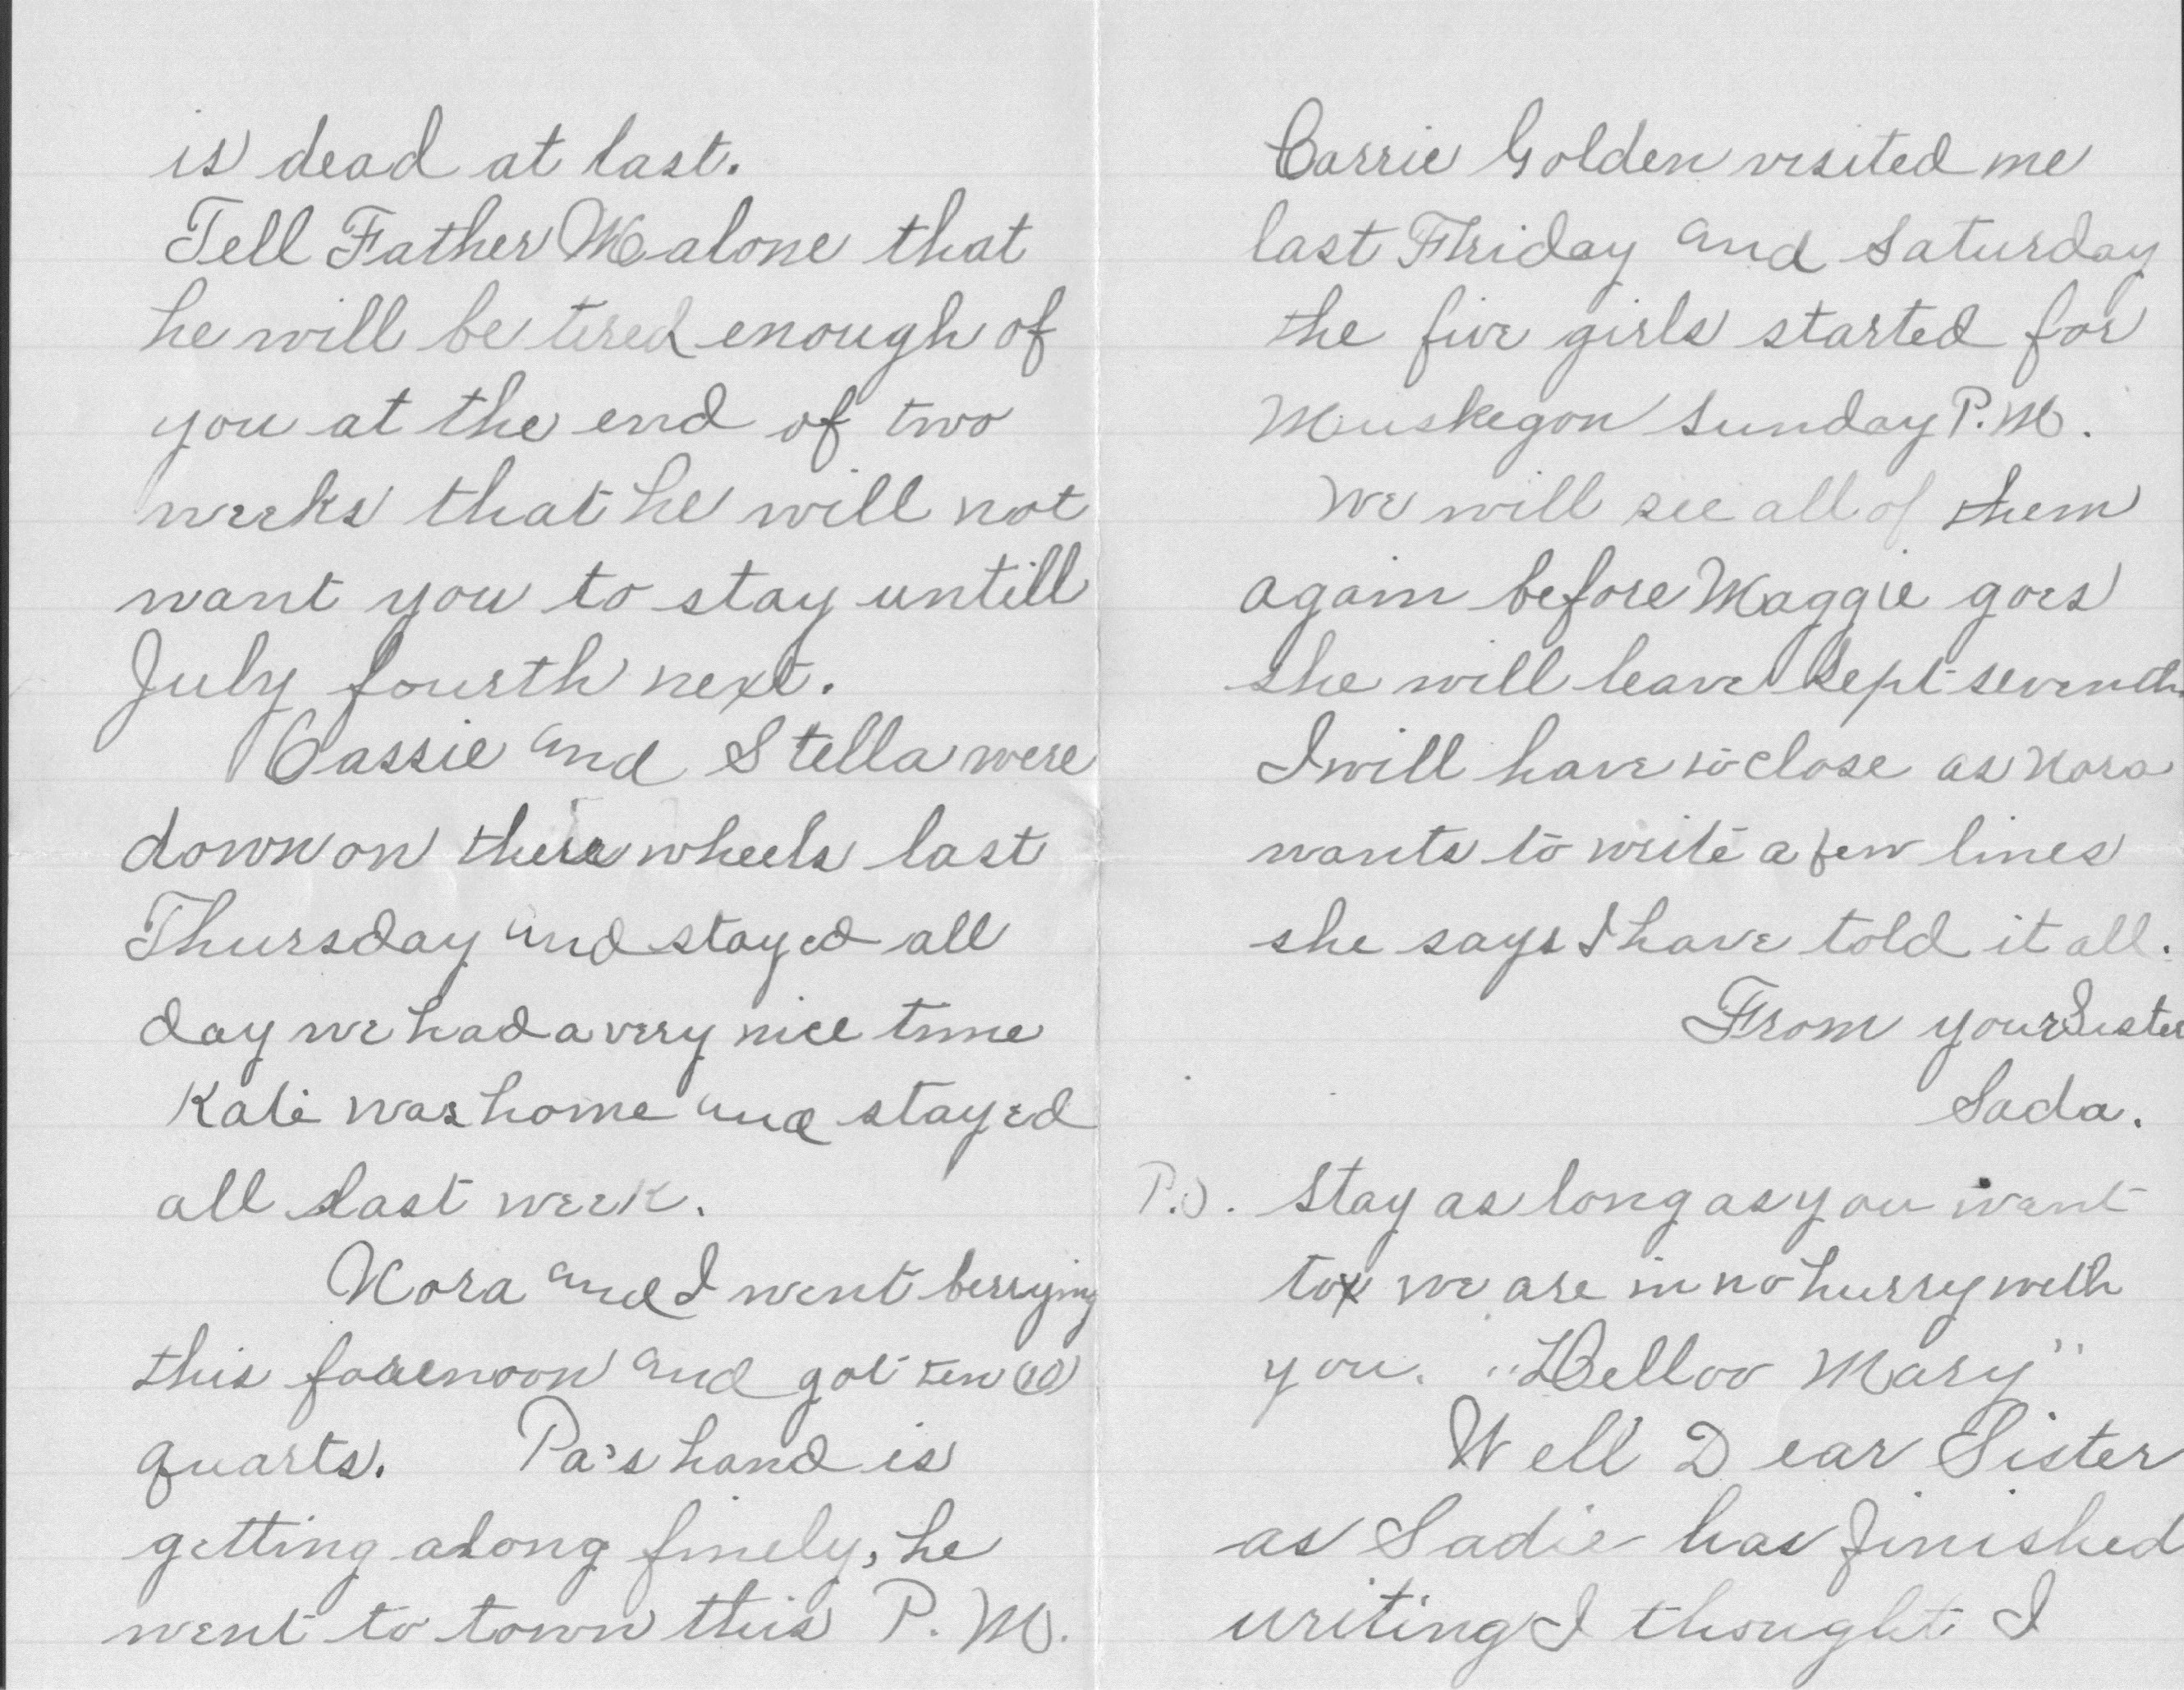 is dead at last.
Tell Father Malone that
he will be tired enough of
you at the end of two
weeks that he will not
want you to stay untill
July fourth next.
Cassie and Stella were
down on there wheels last
Thursday and stayed all
day we had a very nice time
Kate was home and stayed
all last week.
Nora and I went berrying
this forenoon and got ten (10)
quarts. Pa's hand is
getting along finely, he
went to town this P.M.
Carrie Golden visited me
last Friday and Saturday
the five girls started for
Muskegon Sunday P.M.
We will see all of them
again before Maggie goes
she will leave Sept seventh.
I will have to close as Nora
wants to write a few lines
she says I have told it all.
From your Sister
Sada.
P.S. Stay as long as you want
to we are in no hurry with
you. "Helloo Mary"
Well Dear Sister
as Sadie has finished
writing I thought I